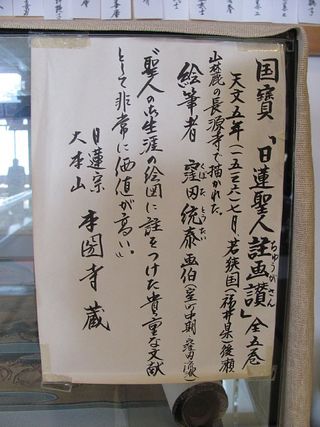 国寶「日蓮聖人註画讃」全五巻
ちゅうがさん
天文五年(一五三六)七月、若狭国(福井県)後瀬
山麓の長源寺で描かれた。
絵筆者 窪田統泰画伯
くぼた とうたい
"聖人の御生涯の絵図に註をつけた貴重な文献
として非常に価値が高い"
日蓮宗
大本山 本圀寺蔵